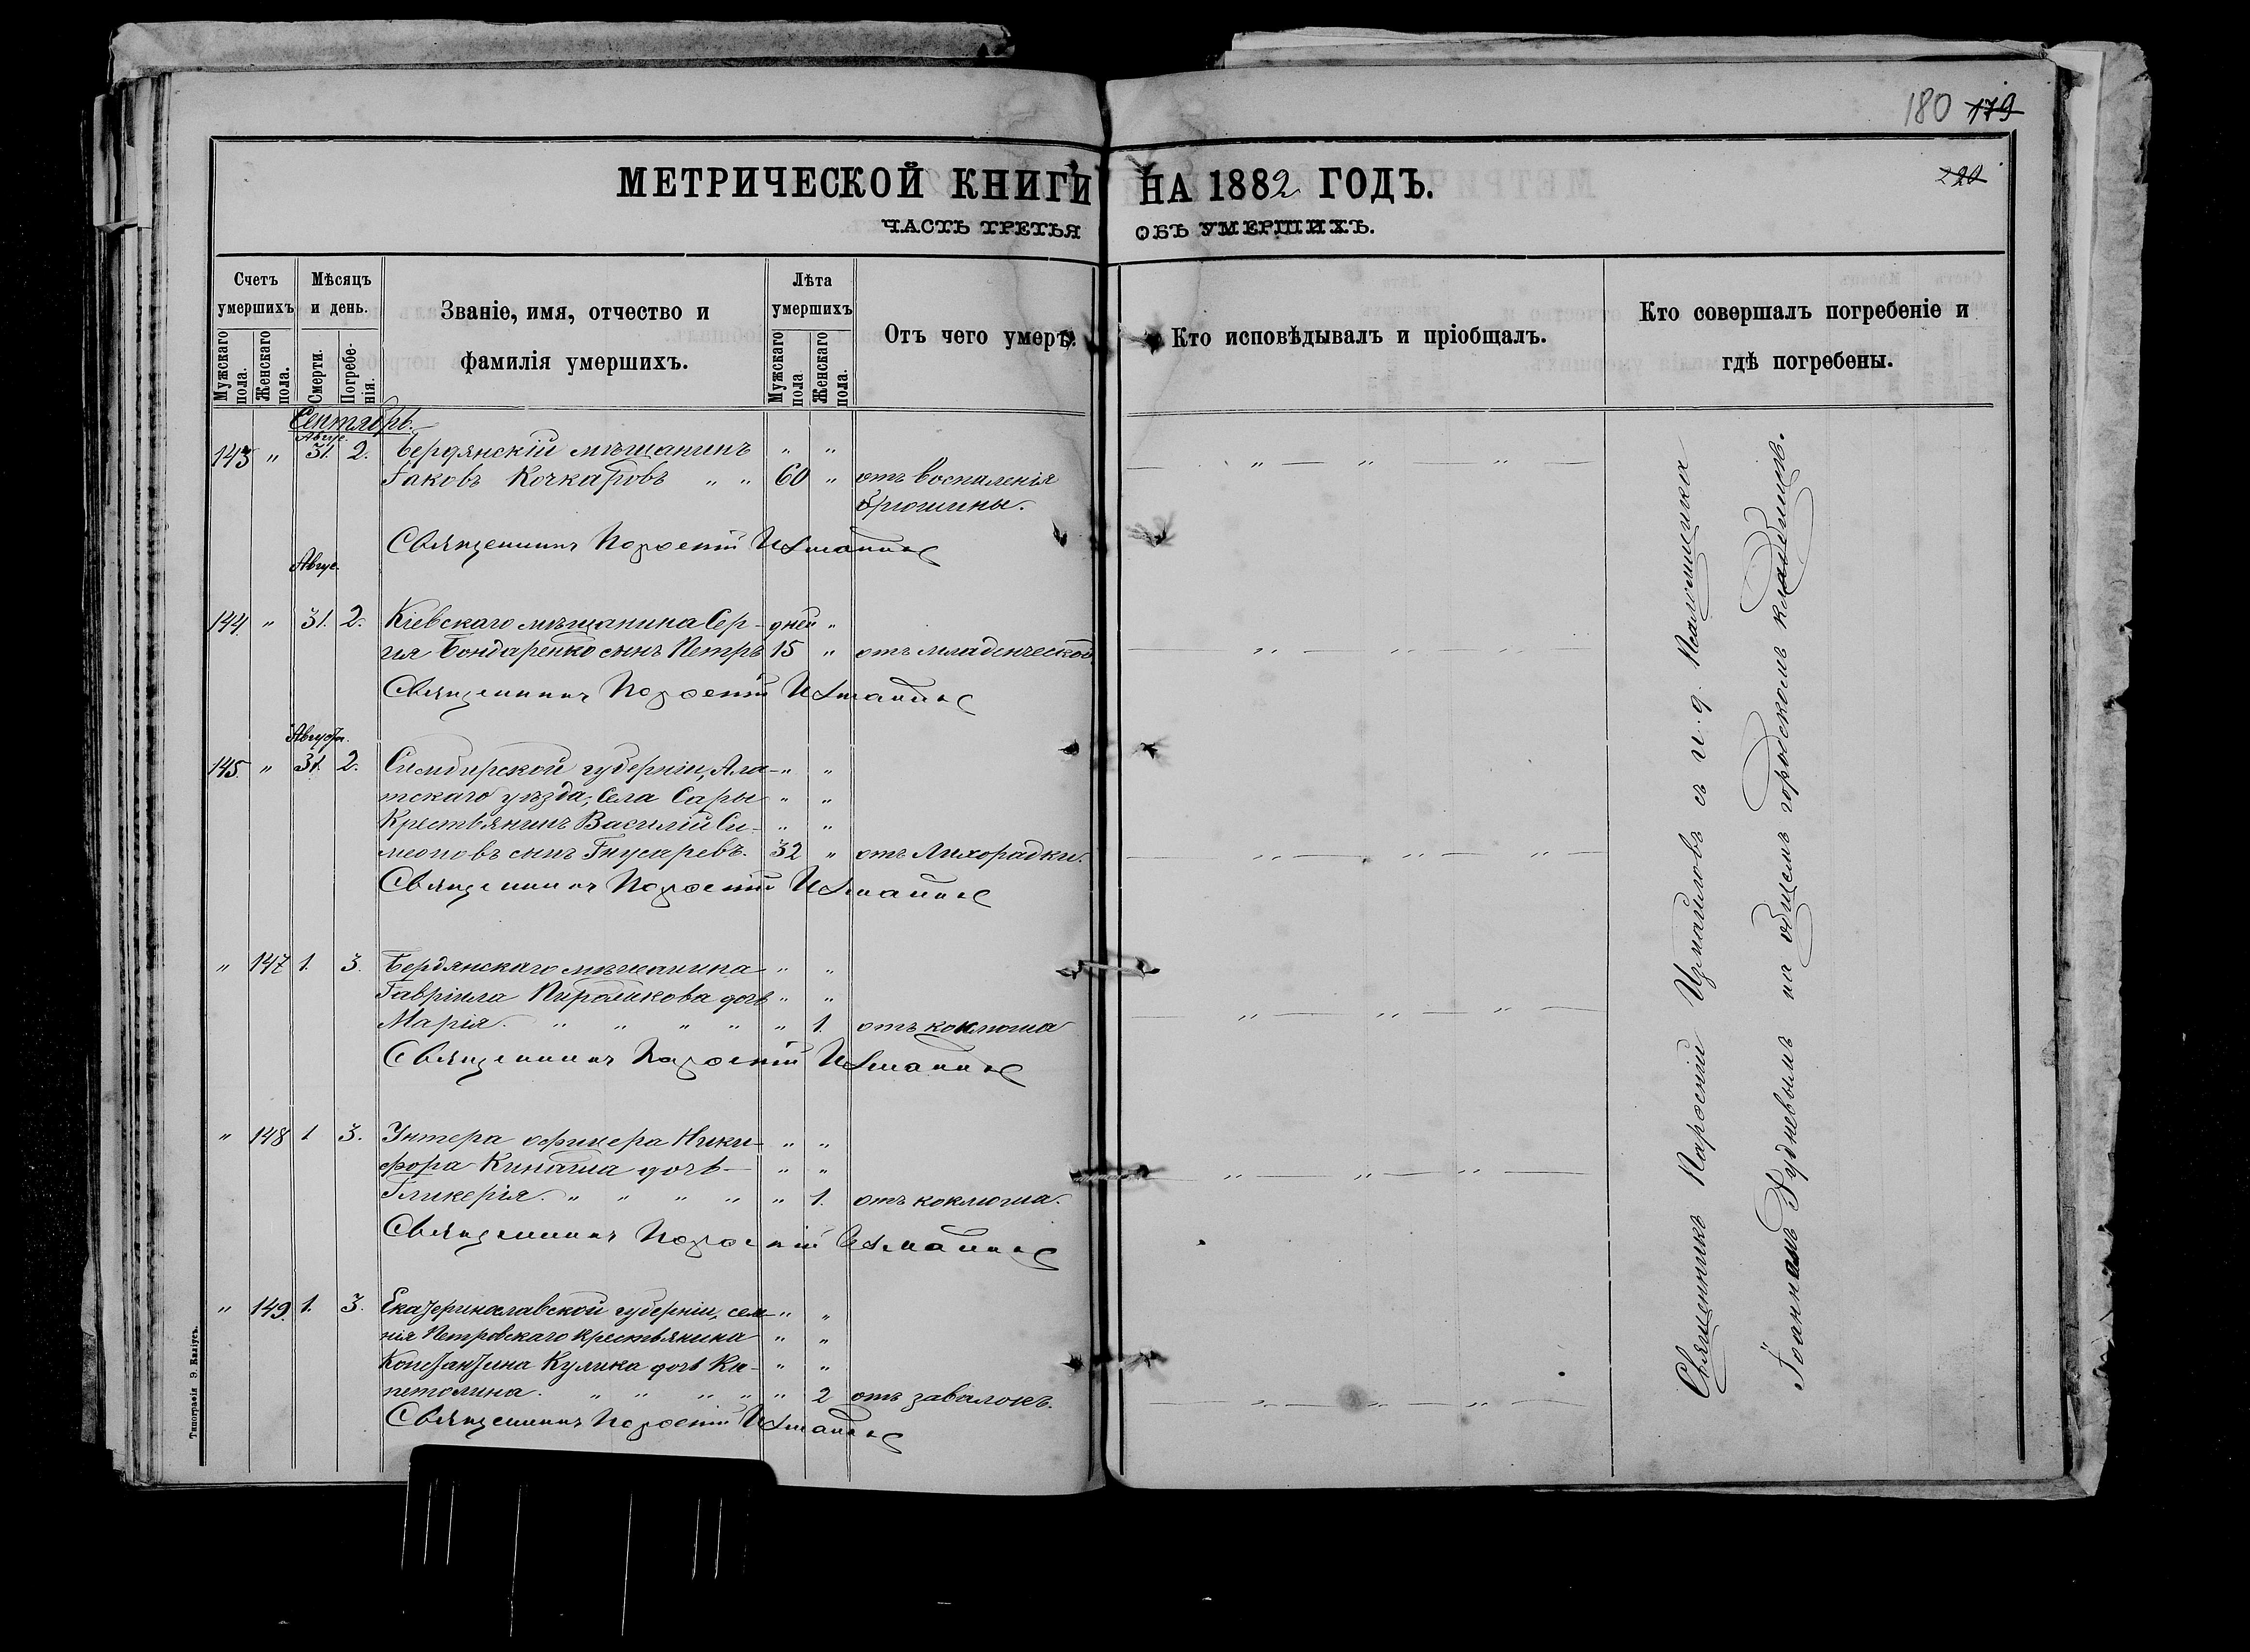 180 179
МЕТРИЧЕСКОЙ КНИГИ НА 1882 ГОДЪ.
ЧАСТЬ ТРЕТЬЯ ОБЪ УМЕРШИХЪ.
Счетъ умершихъ
Мѣсяцъ и день.
Званіе, имя, отчество и фамилія умершихъ.
Лѣта умершихъ
Отъ чего умеръ.
Кто исповѣдывалъ и пріобщалъ.
Кто совершалъ погребеніе и гдѣ погребены.
Мужскаго пола.
Женскаго пола.
Смерти.
Погребенія.
Мужскаго пола
Женскаго пола.
Сентябрь.
Авгус.
143 " 31. 2. Бердянскій мѣщанинъ " "
Іаковъ Кочкаровъ " " 60 " отъ воспаленія
брюшины.
Священникъ Парѳеній Измаиловъ
Авгус.
144. " 31. 2. Кіевскаго мѣщанина Сер- дней "
гія Бондаренко сынъ Петръ 15 " отъ младенческой
Священникъ Парѳеній Измаиловъ
Августа.
145. " 31. 2. Симбирской губерніи, Ала- " "
тскаго уѣзда, Села Сары " "
Крестьянинъ Василій Си- " "
меоновъ сынъ Гнусаревъ. 32 " отъ Лихорадки.
Священникъ Парѳеній Измаиловъ
" 147 1. 3. Бердянскаго мѣщанина " "
Гавріила дочь " "
Марія. " " " " " 1. отъ коклюша
Священникъ Парѳеній Измаиловъ
" 148 1 3. Унтера офицера Ники- " "
фора Кинаша дочь " "
Гликерія. " " " " " 1. отъ коклюша.
Священникъ Парѳеній Измаиловъ
" 149. 1. 3. Екатеринославской губерніи, селе- " "
нія Петровскаго крестьянина " "
Константина Кулика дочь Ка- " "
петолина. " " " " " 2 отъ завалокъ.
Священникъ Парѳеній Измаиловъ
Священникъ Парѳеній Измаиловъ съ и. д. Псаломщика
Іоанномъ Рудневымъ на общемъ городскомъ кладбищѣ.
Типографія Э. Килусъ.